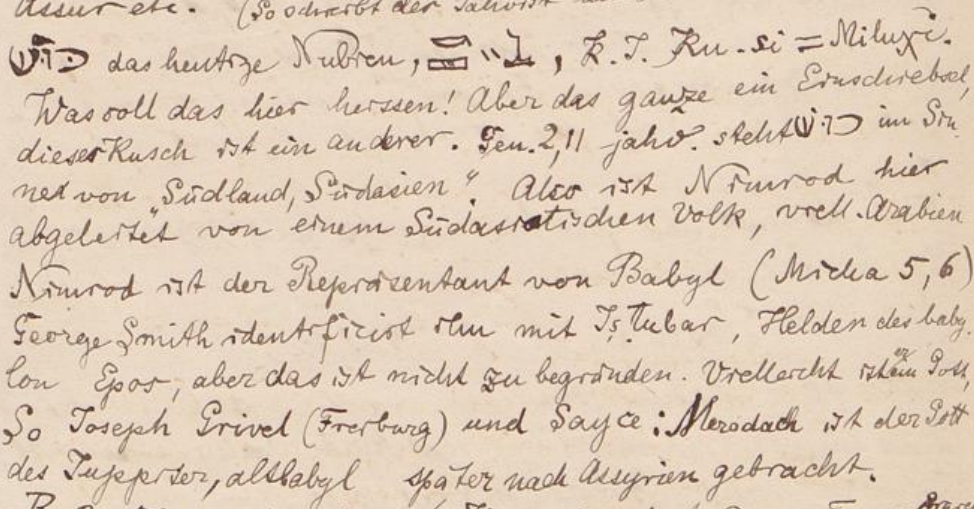 Assur etc. (So schreibt der Jahvist
כוש das heutige Nubien, , K. T. Ku-si = Miluxi.
Was soll das hier heissen! Aber das ganze ein Einschiebsel,
dieses Kusch ist ein anderer. Gen. 2,11 jahv. steht כוש im Sin-
ne von "Südland, Südasien". Also ist Nimrod hier
abgeleitet von einem Südasiatischen Volk, viell. Arabien
Nimrod ist der Repräsentant von Babyl (Micha 5,6)
George Smith identificirt ihn mit Iṣṭubar, Helden des baby
lon Epos, aber das ist nicht zu begründen. Vielleicht ist er ein Gott,
So Joseph Grivel (Freiburg) und Sayce: Merodach ist der Gott
des Juppiter, altbabyl später nach Assyrien gebracht.